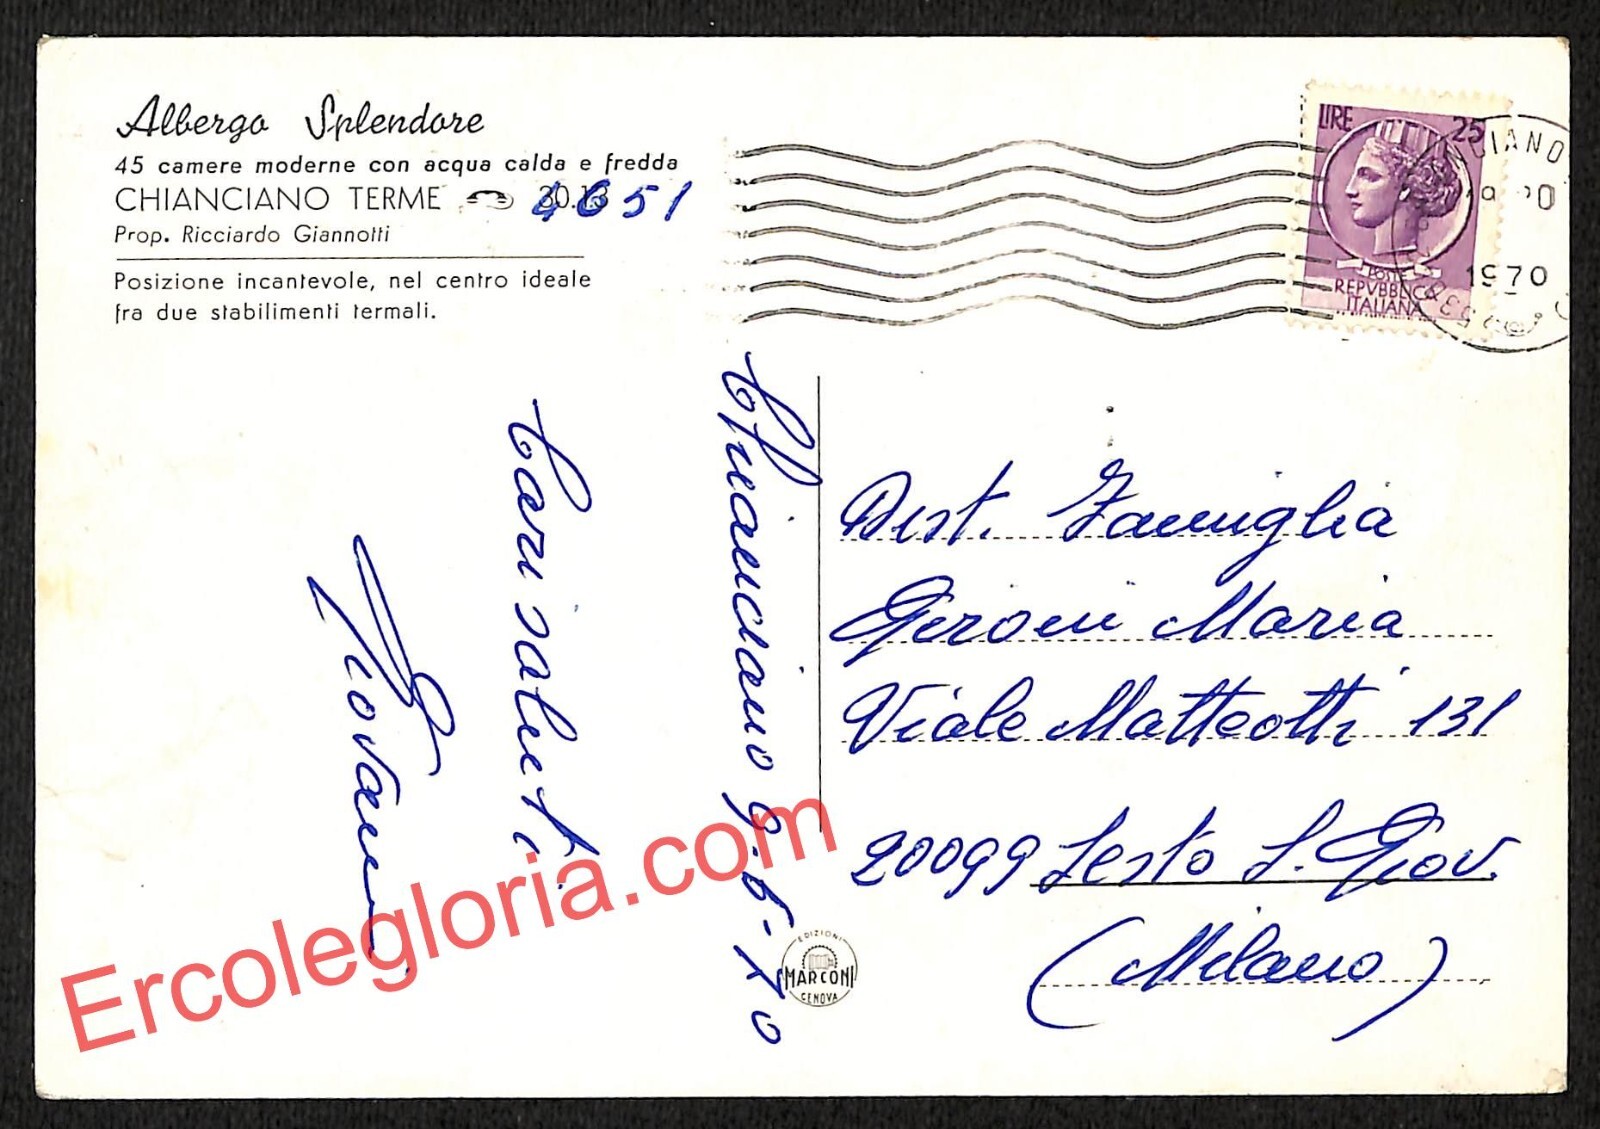 Albergo Splendore
45 camere moderne con acqua calda e fredda
CHIANCIANO TERME 4651
Prop. Ricciardo Giannotti
Posizione incantevole, nel centro ideale
fra due stabilimenti termali.
LIRE 25
POSTE
REPVBBLICA
ITALIANA
1970
Chianciano 9-6-70
Cari saluti
Giovanni
Dist. Famiglia
Geroni Maria
Viale Matteotti 131
20099 Sesto S. Giov.
(Milano)
EDIZIONI
MARCONI
GENOVA
Ercolegloria.com